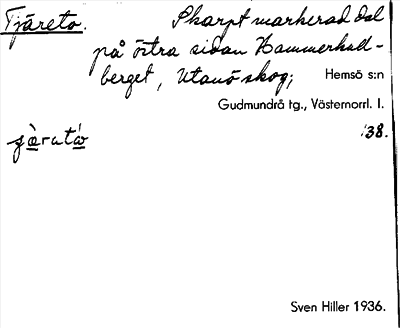 Tjäreto. Skarpt markerad dal
på östra sidan Hammerhall-
berget, Utanö skog; Hemsö s:n
Gudmundrå tg., Västernorrl. l.
:38.
Sven Hiller 1936.